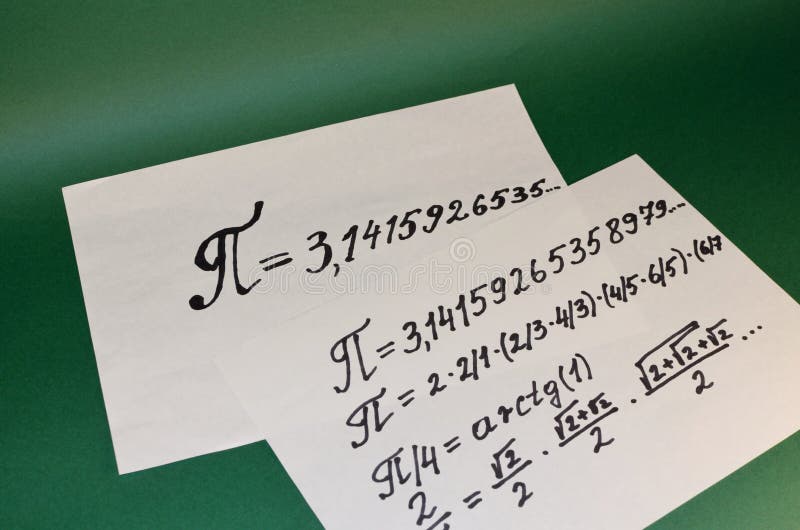 π = 3,1415926535...
π = 3,14159265358979...
π = 2·2/1·(2/3·4/3)·(4/5·6/5)·(6/7
π/4 = arctg(1)
2/ = √2/2 · √(2+√2)/2 · √(2+√2+√2)/2 ...
dreamstime